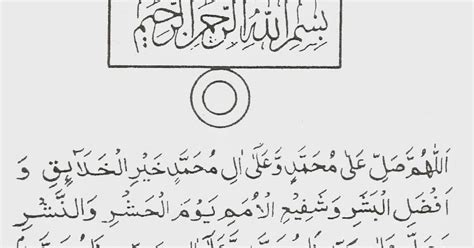 بِسْمِ اللهِ الرَّحْمٰنِ الرَّحِيْمِ
اَللّٰهُمَّ صَلِّ عَلٰى مُحَمَّدٍ وَّعَلٰى اٰلِ مُحَمَّدٍ خَيْرِ الْخَلَآئِقِ وَ
اَفْضَلِ الْبَشَرِ وَشَفِيْعِ الْاُمَمِ يَوْمَ الْحَشْرِ وَالنَّشْرِ